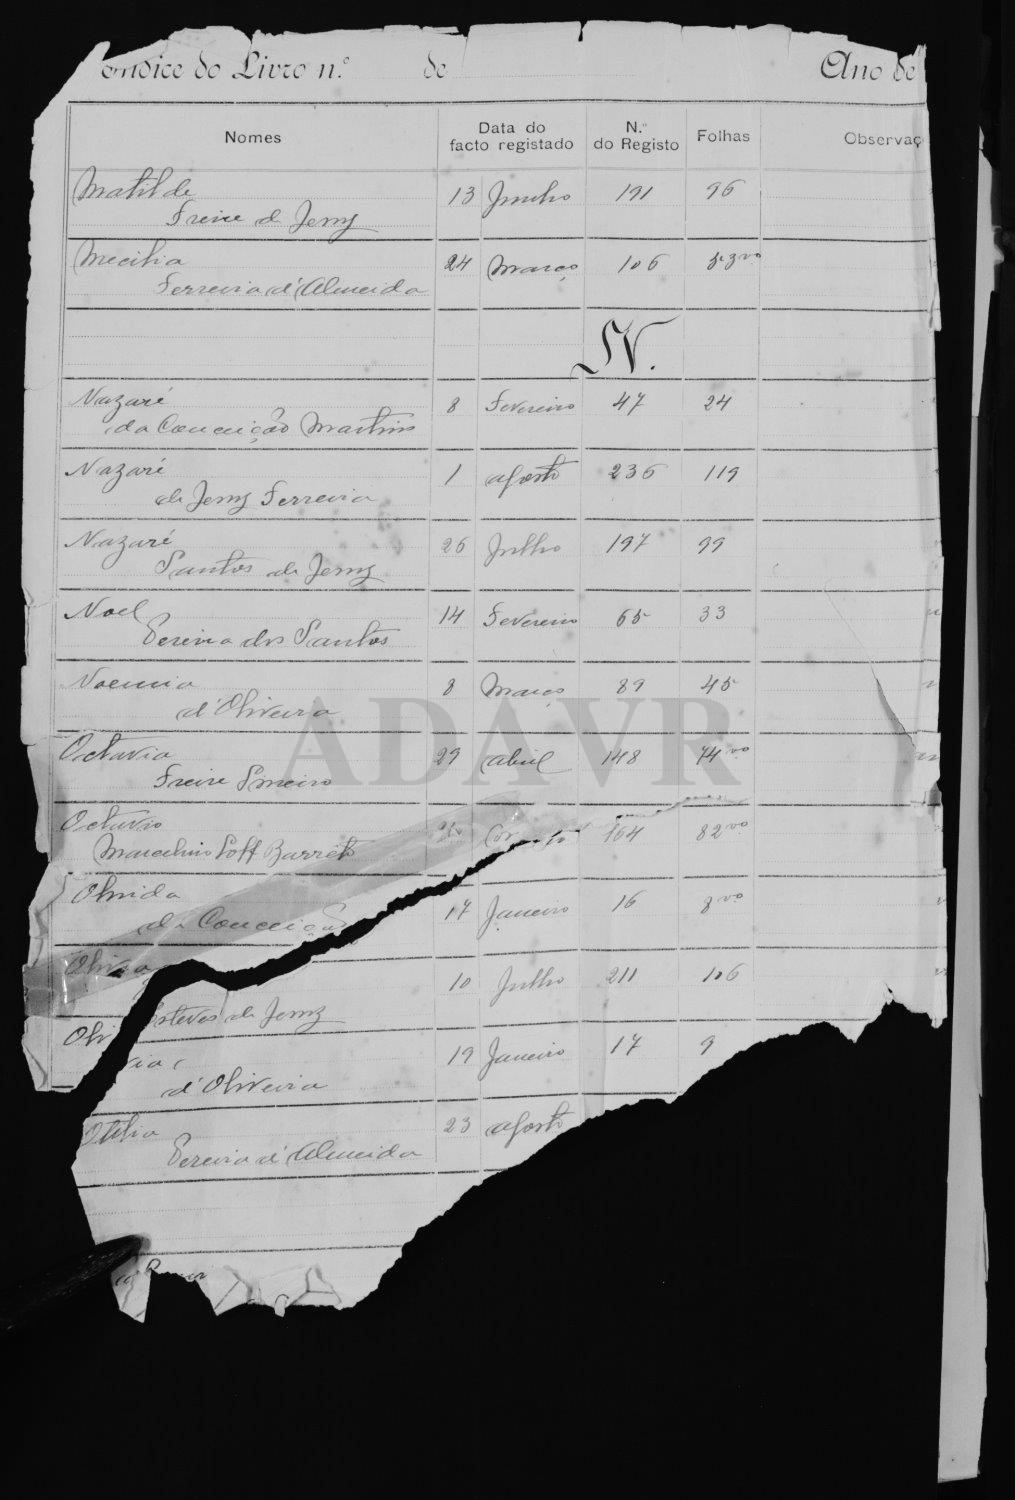 Indice do Livro n.º de Ano de
Nomes Data do facto registado N.º do Registo Folhas Observaç
Matilde 13 Junho 191 96
Freire de Jesus
Mecilia 24 Março 106 53vº
Ferreira d'Almeida
N.
Nazaré 8 Fevereiro 47 24
da Conceição Martins
Nazaré 1 agosto 236 119
de Jesus Ferreira
Nazaré 26 Julho 197 99
Santos de Jesus
Noel 14 Fevereiro 65 33
Pereira dos Santos
Noemia 8 Março 89 45
d'Oliveira
Octavia 29 abril 148 74vº
Freire
Octavio 164 82vº
Marcelino Loff Barreto
Olinda 17 Janeiro 16 8vº
da Conceição
Olivia 10 Julho 211 106
Esteves de Jesus
Oli 19 Janeiro 17 9
via
d'Oliveira
Otilia 23 agosto
Pereira d'Almeida
ADAVR